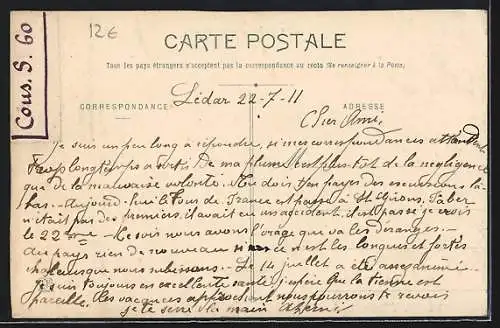 12€
Cous. S. 60
CARTE POSTALE
Tous les pays étrangers n'acceptent pas la correspondance au recto (Se renseigner à la Poste)
CORRESPONDANCE
ADRESSE
Lédar 22-7-11
Cher Ami,
Je suis un peu long à répondre, si mes correspondances attendent
trop longtemps de ma plume c'est plus tôt de la négligence
que de la mauvaise volonté. tu dois faire des excursions là-
bas. Aujourd'hui le Tour de France est passé à St Girons. Faber
n'était pas des premiers, il avait eu un accident, il est passé je crois
le 22ème. Ce soir nous avons l'orage que va les déranges.
du pays rien de nouveau si ce n'est les longues et fortes
chaleurs que nous subissons. Le 14 juillet a été
Je suis toujours en excellente santé j'espère que la tienne est
pareille. Les vacances approchent nous pourrons te revoir
je te serre la main